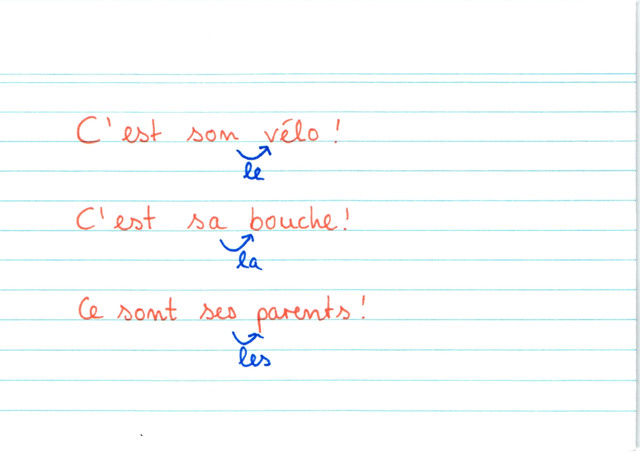 C'est son vélo !
le
C'est sa bouche !
la
Ce sont ses parents !
les